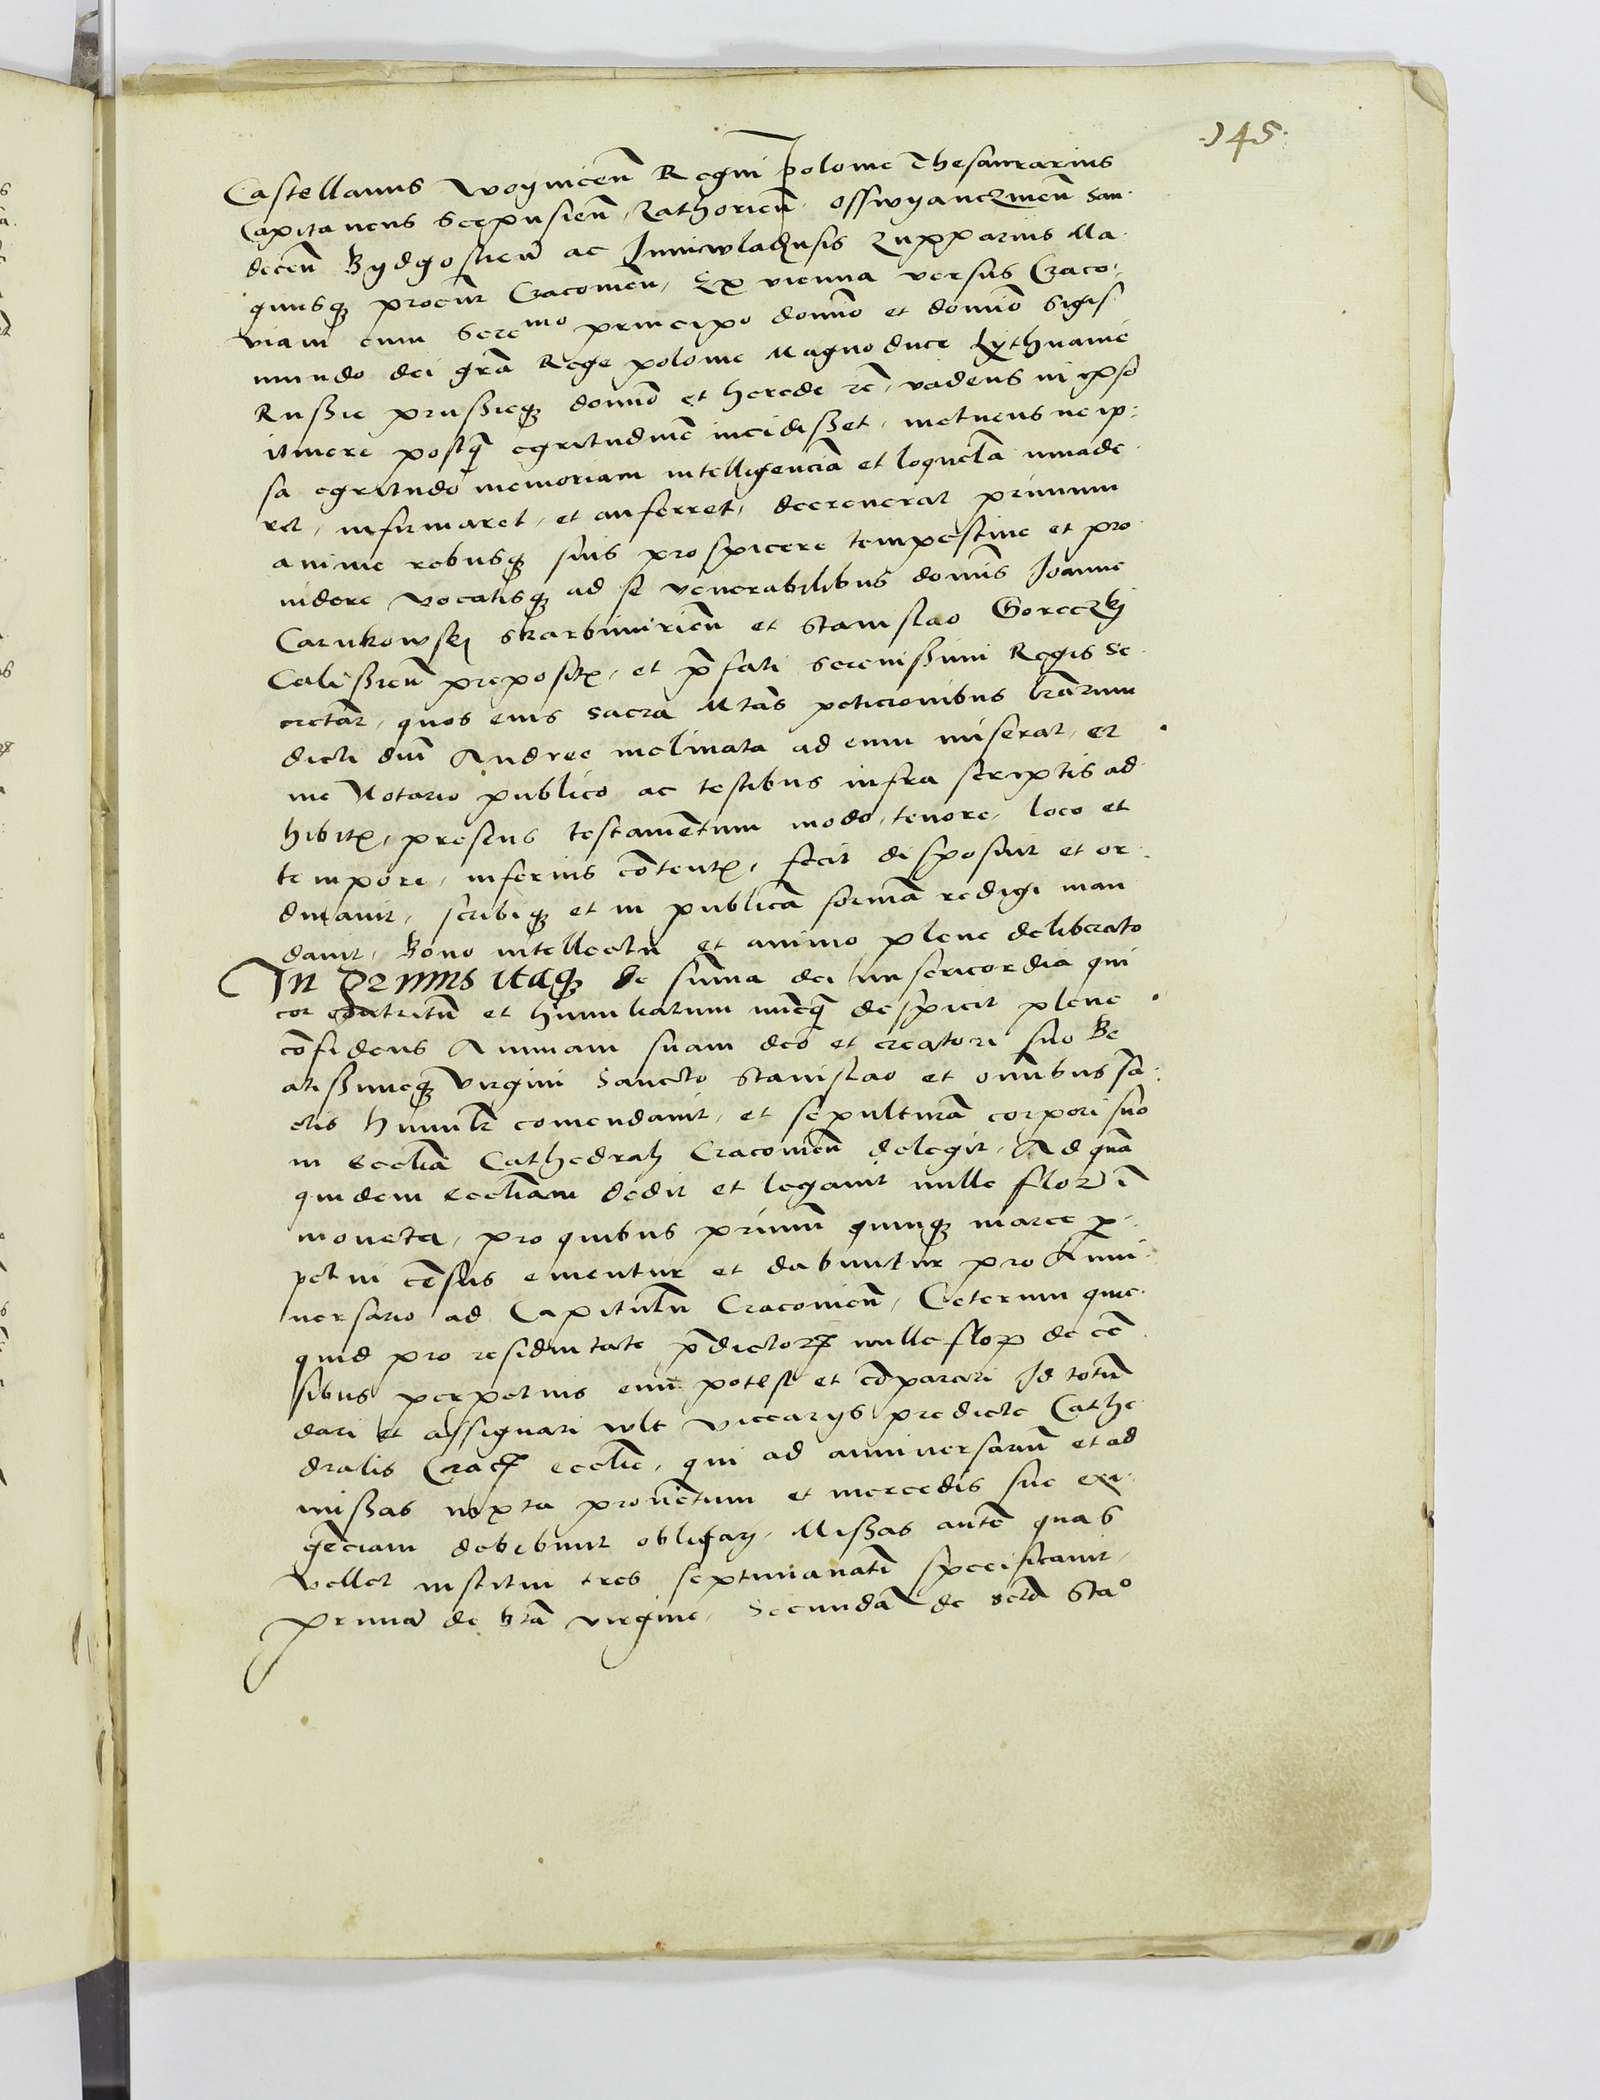 ·145·
Castellanus woyniceñ Regni polonie Thesaurarius
Capitaneus Scepusieñ, Zathorieñ Osswyanczimeñ San
deceñ Bydgostieñ ac Iuniwladzensis Zupparius Ma
gnusq; procur̃ Cracovieñ, Ex vienna versus Craco:
viam cum Sere^mo principe domĩo et domĩo Sigis
mundo dei grã Rege polonie Magno duce Lythuanie
Russie prussieq; domĩo et herede &c̃, vadens in ipso
itinere postq̃ egritudinẽ incidisset, metuens ne ip:
sa egritudo memoriam intelligenciã et loquelã invade
ret, infirmaret, et auferret, decreverat primum
anime rebusq; suis prospicere tempestive et pro
videre vocatisq; ad se venerabilibus domĩs Ioanne
Carnkowskj Skarbimirieñ et Stanislao Goreczkj
Calissieñ prepositꝭ, et p̃fati Serenissimi Regis Se
cretar̃, quos eius Sacra M̃tas peticionibus lr̃arum
dicti dñi Andree inclinata ad eum miserat, et
me Notario publico ac testibus infra scriptis ad
hibitꝭ, presens testamẽtum modo, tenore, loco et
tempore, inferius cõtentꝭ, fecit disposuit et or
dinavit, scribiq; et in publicã formã redigi man
davit, Bono intellectu et animo plene deliberato
In primis itaq; de sum̃a dei misericordia qui
cor cõtritũ et humiliatum nũcq̃ despicit plene
cõfidens Animam suam deo et creatori suo Be
atissimeq; virgini Sancto Stanislao et omĩbus sã
ctis humilr̃ comendavit, et sepulturã corpori suo
in Ecclia Cathedralj Cracovieñ delegit, Ad quã
quidem eccliam dedit et legavit mille flor̃ ĩ
moneta, pro quibus primũ quinq; marce p̱
petui cẽsus ementur et dabuntur pro Anni
versario ad Capitulũ Cracovieñ, Ceterum quic
quid pro residuitate p̃dictorꝝ mille flor̃ de cẽ
sibus perpetuis emi potest et cõparari Id totũ
dari et assignari vult viccarijs predicte Cathe
dralis Crac̃ ecclie, qui ad anniversariũ et ad
missas iuxta proventum et mercedis sue exi
gẽciam debebunt obligarj, Missas autẽ quas
vellet institui tres septimanatĩ specificavit,
Primã de b̃tã virgine, Secundã de sctõ Sta^o